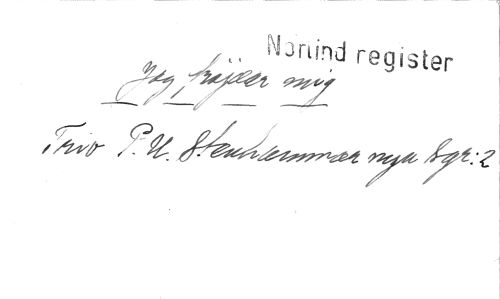 Norlind register
Jag fröjdar mig
Trio P.U. Stenhammar nya sgr: 2